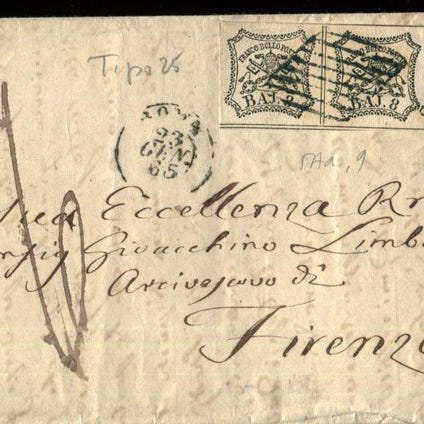 Tipo 25
FRANCO BOLLO POSTALE
BAJ. 8
FRANCO BOLLO POSTALE
BAJ. 8
ROMA
23
GEN
65
Sua Eccellenza R
Gioacchino Limb
Arcivescovo di
Firenze